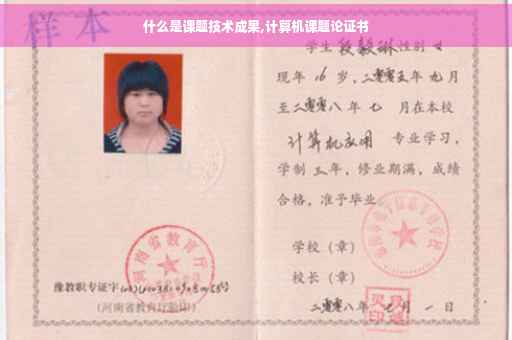 什么是课题技术成果,计算机课题论证书
样本
学生段毅琳性别女
现年16岁,二零零五年九月
至二零零八年七月在本校
计算机应用 专业学习,
学制三年,修业期满,成绩
合格,准予毕业
学校(章)
校长(章)
二零零八年七月一日
河南省教育厅
豫教职专证字
(河南省教育厅验印)